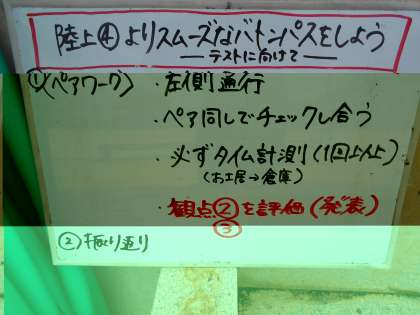 陸上④よりスムーズなバトンパスをしよう
―テストに向けて―
①(ペアワーク) ・左側通行
・ペア同しでチェックし合う
・必ずタイム計測(1回以上)
(お工居→倉庫)
・観点②を評価(発表)
③
②振り返り